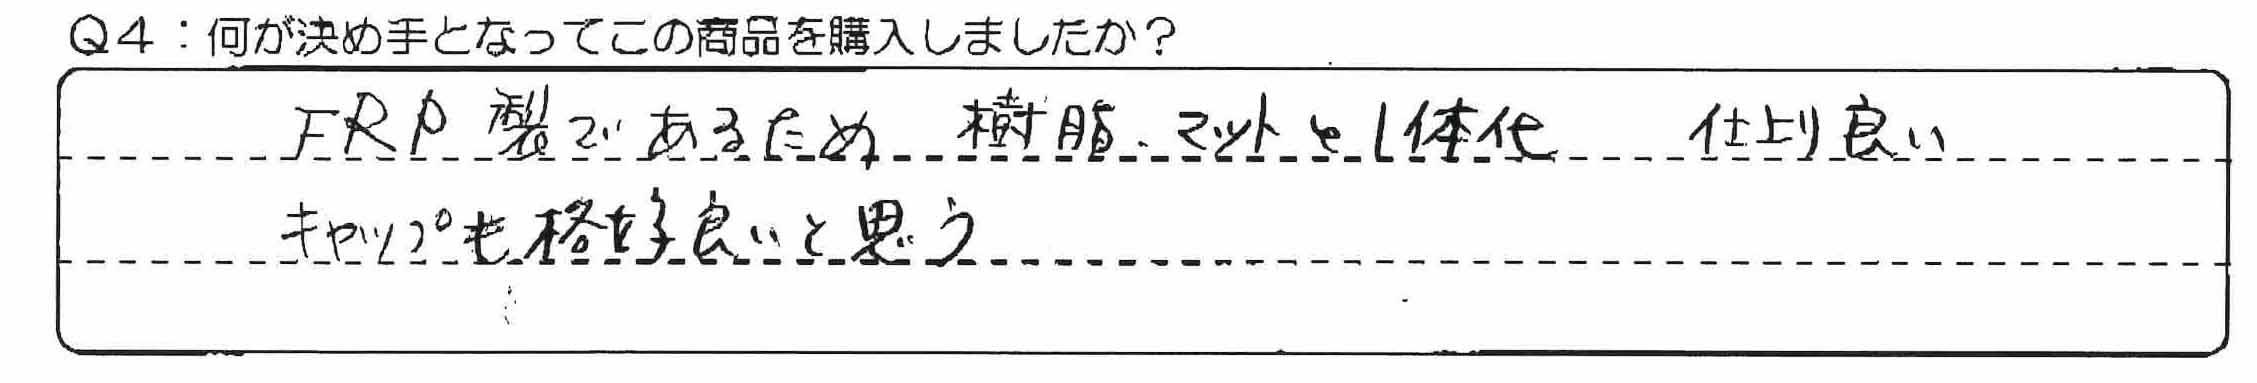 Q4：何が決め手となってこの商品を購入しましたか？
FRP製であるため 樹脂、マットと1体化 仕上り良い
キャップも格好良いと思う